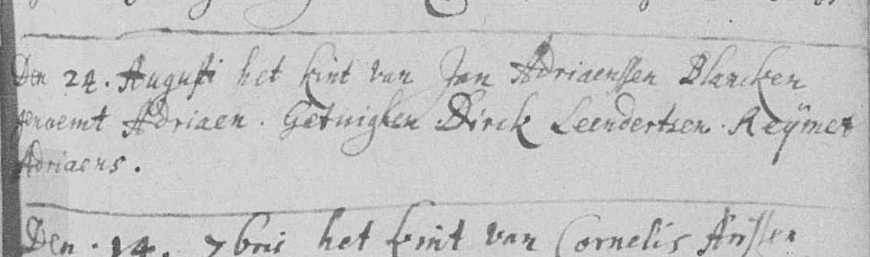 Den 24. Augusti het kint van Jan Adriaenssen Blancken
genoemt Adriaen. Getuighen Dirck Leendertsen. Reÿmet
Adriaens.
Den. 14. 7bris het kint van Cornelis